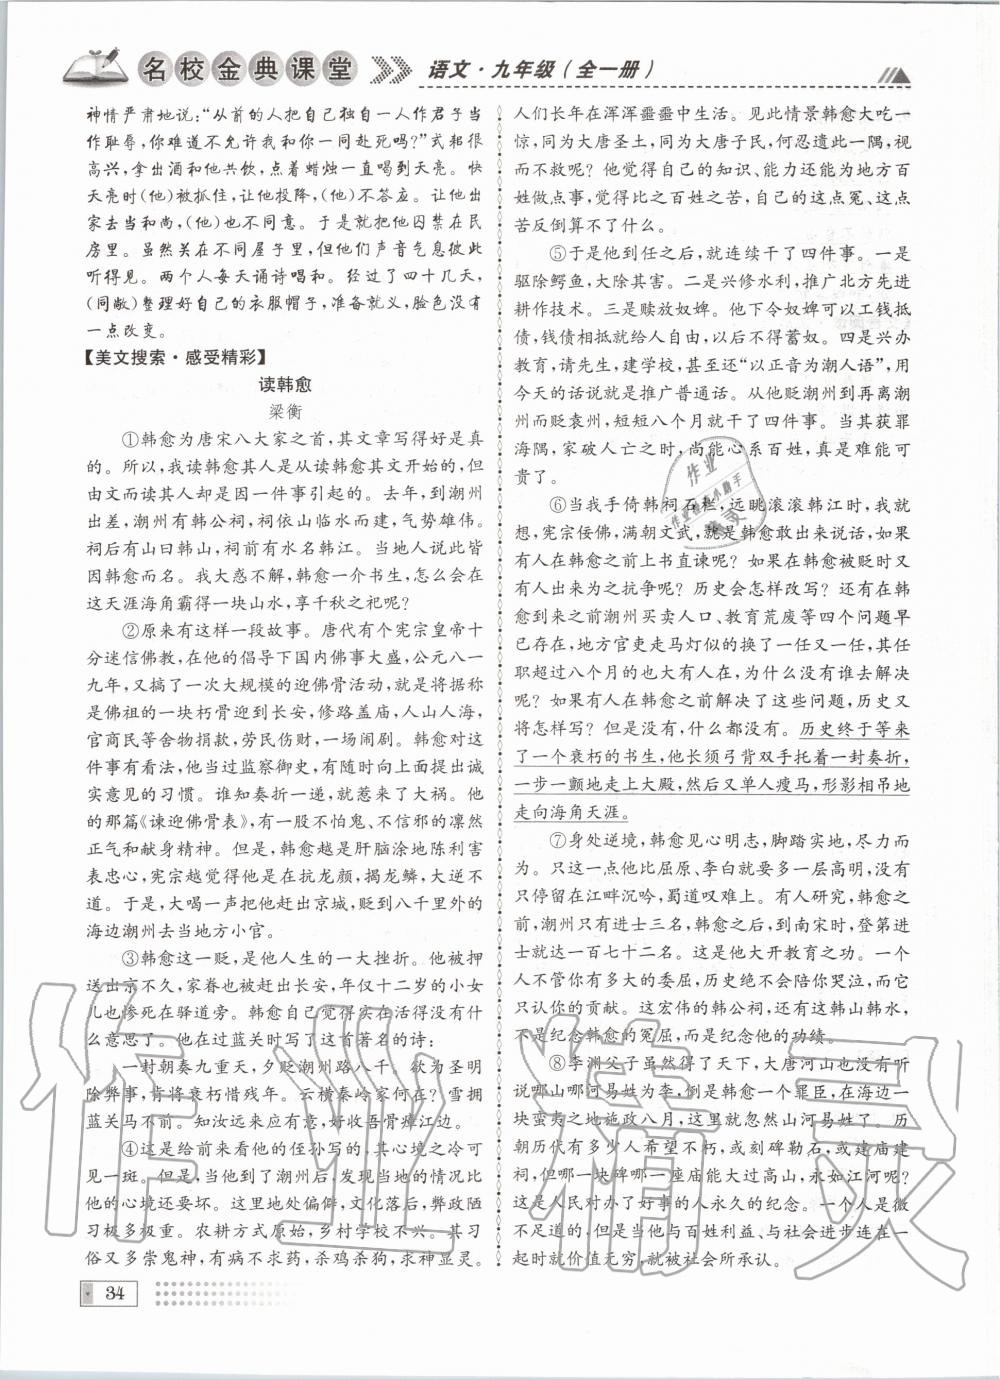 名校金典课堂 语文·九年级(全一册)
神情严肃地说:“从前的人把自己独自一人作君子当
作耻辱,你难道不允许我和你一同赴死吗?”式耜很
高兴,拿出酒和他共饮,点着蜡烛一直喝到天亮。快
天亮时(他)被抓住,让他投降,(他)不答应。让他出
家去当和尚,(他)也不同意。于是就把他囚禁在民
房里。虽然关在不同屋子里,但他们声音气息彼此
听得见。两个人每天诵诗唱和。经过了四十几天,
(同敞)整理好自己的衣服帽子,准备就义,脸色没有
一点改变。
【美文搜索·感受精彩】
读韩愈
梁衡
①韩愈为唐宋八大家之首,其文章写得好是真
的。所以,我读韩愈其人是从读韩愈其文开始的,但
由文而读其人却是因一件事引起的。去年,到潮州
出差,潮州有韩公祠,祠依山临水而建,气势雄伟。
祠后有山曰韩山,祠前有水名韩江。当地人说此皆
因韩愈而名。我大惑不解,韩愈一介书生,怎么会在
这天涯海角霸得一块山水,享千秋之祀呢?
②原来有这样一段故事。唐代有个宪宗皇帝十
分迷信佛教,在他的倡导下国内佛事大盛,公元八一
九年,又搞了一次大规模的迎佛骨活动,就是将据称
是佛祖的一块朽骨迎到长安,修路盖庙,人山人海,
官商民等舍物捐款,劳民伤财,一场闹剧。韩愈对这
件事有看法,他当过监察御史,有随时向上面提出诚
实意见的习惯。谁知奏折一递,就惹来了大祸。他
的那篇《谏迎佛骨表》,有一股不怕鬼、不信邪的凛然
正气和献身精神。但是,韩愈越是肝脑涂地陈利害
表忠心,宪宗越觉得他是在抗龙颜,揭龙鳞,大逆不
道。于是,大喝一声把他赶出京城,贬到八千里外的
海边潮州去当地方小官。
③韩愈这一贬,是他人生的一大挫折。他被押
送出京不久,家眷也被赶出长安,年仅十二岁的小女
儿也惨死在驿道旁。韩愈自己觉得实在活得没有什
么意思了。他在过蓝关时写了这首著名的诗:
一封朝奏九重天,夕贬潮阳路八千。欲为圣明
除弊事,肯将衰朽惜残年。云横秦岭家何在?雪拥
蓝关马不前。知汝远来应有意,好收吾骨瘴江边。
④这是给前来看他的侄孙写的,其心境之冷可
见一斑。但是,当他到了潮州后,发现当地的情况比
他的心境还要坏。这里地处偏僻,文化落后,弊政陋
习极多极重。农耕方式原始,乡村学校不兴。其习
俗又多崇鬼神,有病不求药,杀鸡杀狗,求神显灵。
人们长年在浑浑噩噩中生活。见此情景韩愈大吃一
惊,同为大唐圣土,同为大唐子民,何忍遗此一隅,视
而不救呢?他觉得自己的知识、能力还能为地方百
姓做点事,觉得比之百姓之苦,自己的这点冤、这点
苦反倒算不了什么。
⑤于是他到任之后,就连续干了四件事。一是
驱除鳄鱼,大除其害。二是兴修水利,推广北方先进
耕作技术。三是赎放奴婢。他下令奴婢可以工钱抵
债,钱债相抵就给人自由,以后不得蓄奴。四是兴办
教育,请先生,建学校,甚至还“以正音为潮人语”,用
今天的话说就是推广普通话。从他贬潮州到再离潮
州而贬袁州,短短八个月就干了四件事。当其获罪
海隅,家破人亡之时,尚能心系百姓,真是难能可
贵了。
⑥当我手倚韩祠石栏,远眺滚滚韩江时,我就
想,宪宗佞佛,满朝文武,就是韩愈敢出来说话,如果
有人在韩愈之前上书直谏呢?如果在韩愈被贬时又
有人出来为之抗争呢?历史会怎样改写?还有在韩
愈到来之前潮州买卖人口、教育荒废等四个问题早
已存在,地方官吏走马灯似的换了一任又一任,其任
职超过八个月的也大有人在,为什么没有谁去解决
呢?如果有人在韩愈之前解决了这些问题,历史又
将怎样写?但是没有,什么都没有。历史终于等来
了一个衰朽的书生,他长须弓背双手托着一封奏折,
一步一颤地走上大殿,然后又单人瘦马,形影相吊地
走向海角天涯。
⑦身处逆境,韩愈见心明志,脚踏实地,尽力而
为。只这一点他比屈原、李白就要多一层高明,没有
只停留在江畔沉吟,蜀道叹难上。有人研究,韩愈之
前,潮州只有进士三名,韩愈之后,到南宋时,登第进
士就达一百七十二名。这是他大开教育之功。一个
人不管你有多大的委屈,历史绝不会陪你哭泣,而它
只认你的贡献。这宏伟的韩公祠,还有这韩山韩水,
不是纪念韩愈的冤屈,而是纪念他的功绩。
⑧李渊父子虽然得了天下,大唐河山也没有听
说哪山哪河易姓为李,倒是韩愈一个罪臣,在海边一
块蛮夷之地施政八月,这里就忽然山河易姓了。历
朝历代有多少人希望不朽,或刻碑勒石,或建庙建
祠,但哪一块碑哪一座庙能大过高山,永如江河呢?
这是人民对办了好事的人永久的纪念。一个人是微
不足道的,但是当他与百姓利益、与社会进步连在一
起时就价值无穷,就被社会所承认。
34
作业精灵